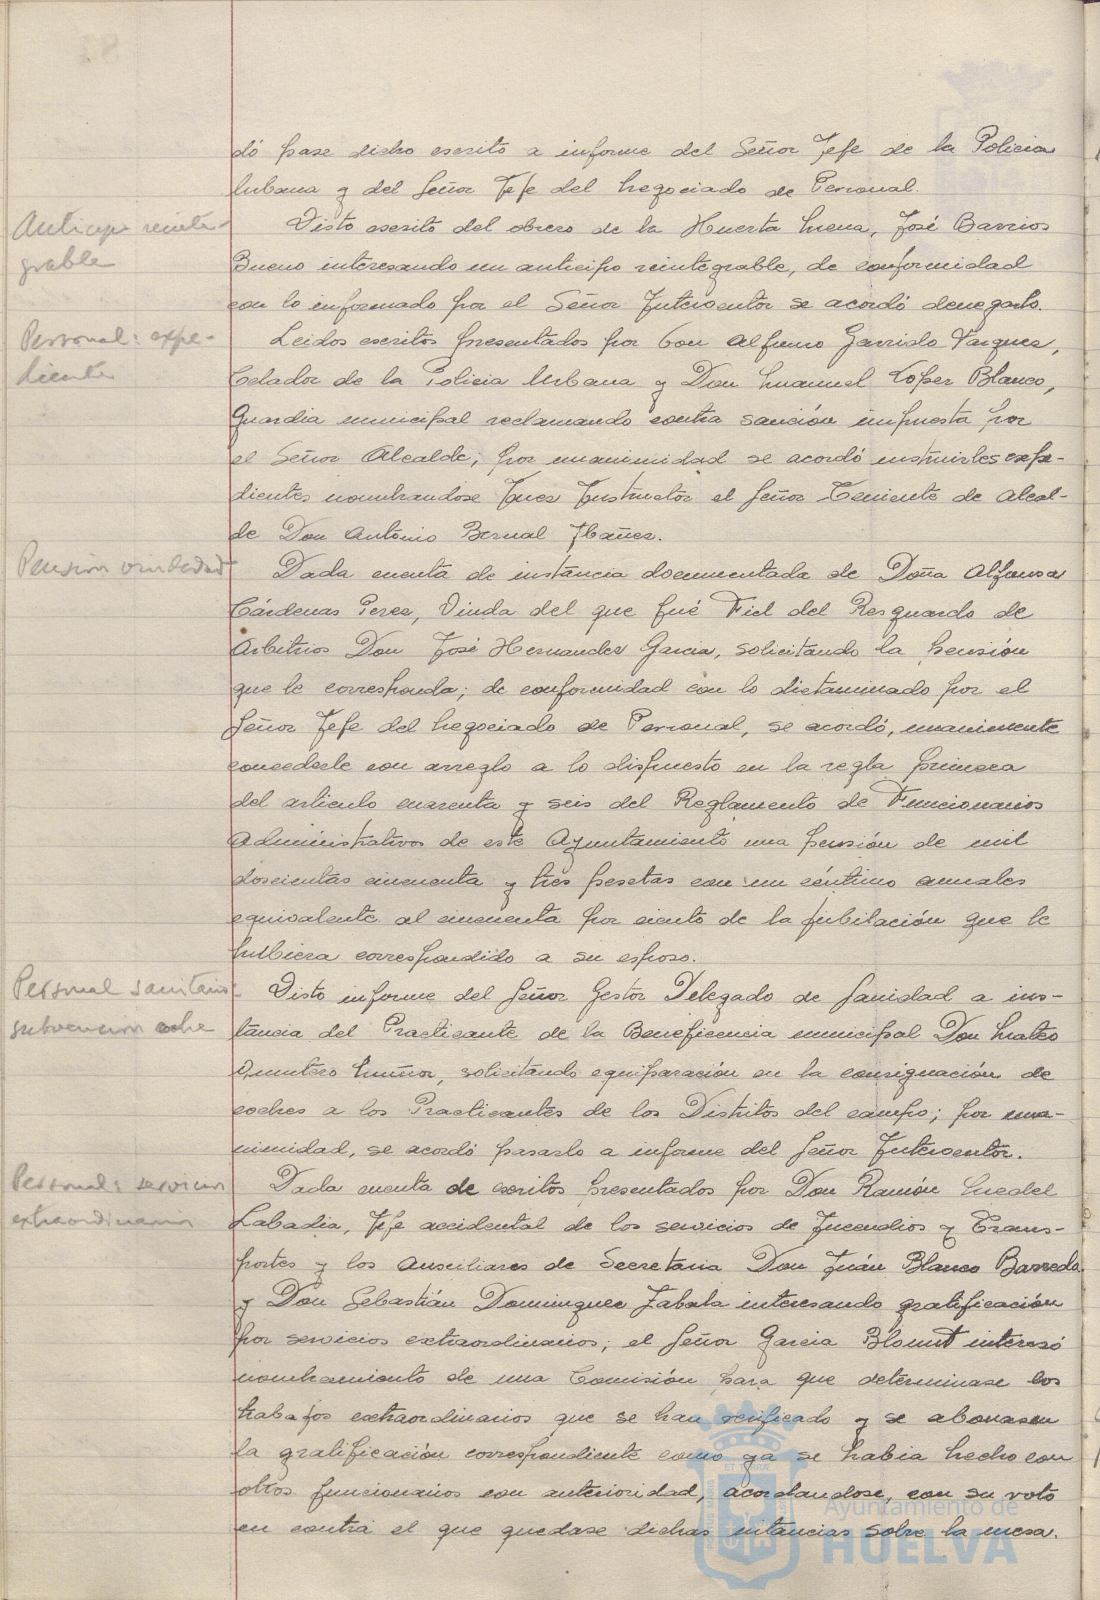 dó pase dicho escrito a informe del Señor Jefe de la Policia
Urbana y del Señor Jefe del Negociado de Personal.
Anticipo reinte-
grable
Visto escrito del obrero de la Huerta Mena, José Barrios
Bueno interesando un anticipo reintegrable, de conformidad
con lo informado por el Señor Interventor se acordó denegarlo.
Personal: expe-
diente
Leidos escritos presentados por Don Alfonso Garrido Vazquez,
Celador de la Policia Urbana y Don Manuel López Blanco,
Guardia municipal reclamando contra sanción impuesta por
el Señor Alcalde; por unanimidad se acordó instruirles expe-
dientes nombrandose Juez Instructor el Señor Teniente de Alcal-
de Don António Bernal Ibañez.
Pensión viudedad
Dada cuenta de instáncia documentada de Doña Alfonsa
Cárdenas Perez, Viuda del que fué Fiel del Resguardo de
Arbitrios Don José Hernandez Garcia, solicitando la pensión
que le corresponda; de conformidad con lo dictaminado por el
Señor Jefe del Negociado de Personal, se acordó, unanimente
concederle con arreglo a lo dispuesto en la regla primera
del articulo cuarenta y seis del Reglamento de Funcionarios
Administrativos de este Ayuntamiento una pensión de mil
doscientas cincuenta y tres pesetas con un céntimo anuales
equivalente al cincuenta por ciento de la jubilación que le
hubiera correspondido a su esposo.
Personal sanitario
subvencion coche
Visto informe del Señor Gestor Delegado de Sanidad a ins-
táncia del Practicante de la Beneficencia municipal Don Mateo
Quintero Muñoz, solicitando equiparación en la consignación de
coches a los Practicantes de los Distritos del campo; por una-
nimidad, se acordó pasarlo a informe del Señor Interventor.
Personal: servicios
extraordinarios
Dada cuenta de escritos presentados por Don Ramón
Labadia, Jefe accidental de los servicios de Incendios y Trans-
portes y los Auxiliares de Secretaria Don Juán Blanco Barreda
y Don Sebastián Dominguez Zabala interesando gratificación
por servicios extraordinarios; el Señor Garcia Blount interesó
nombramiento de una Comisión para que determinase los
trabajos extraordinarios que se han verificado y se abonasen
la gratificación correspondiente como ya se habia hecho con
otros funcionarios con anterioridad, acordandose, con su voto
en contra el que quedase dichas intancias sobre la mesa.
Ayuntamiento de
HUELVA